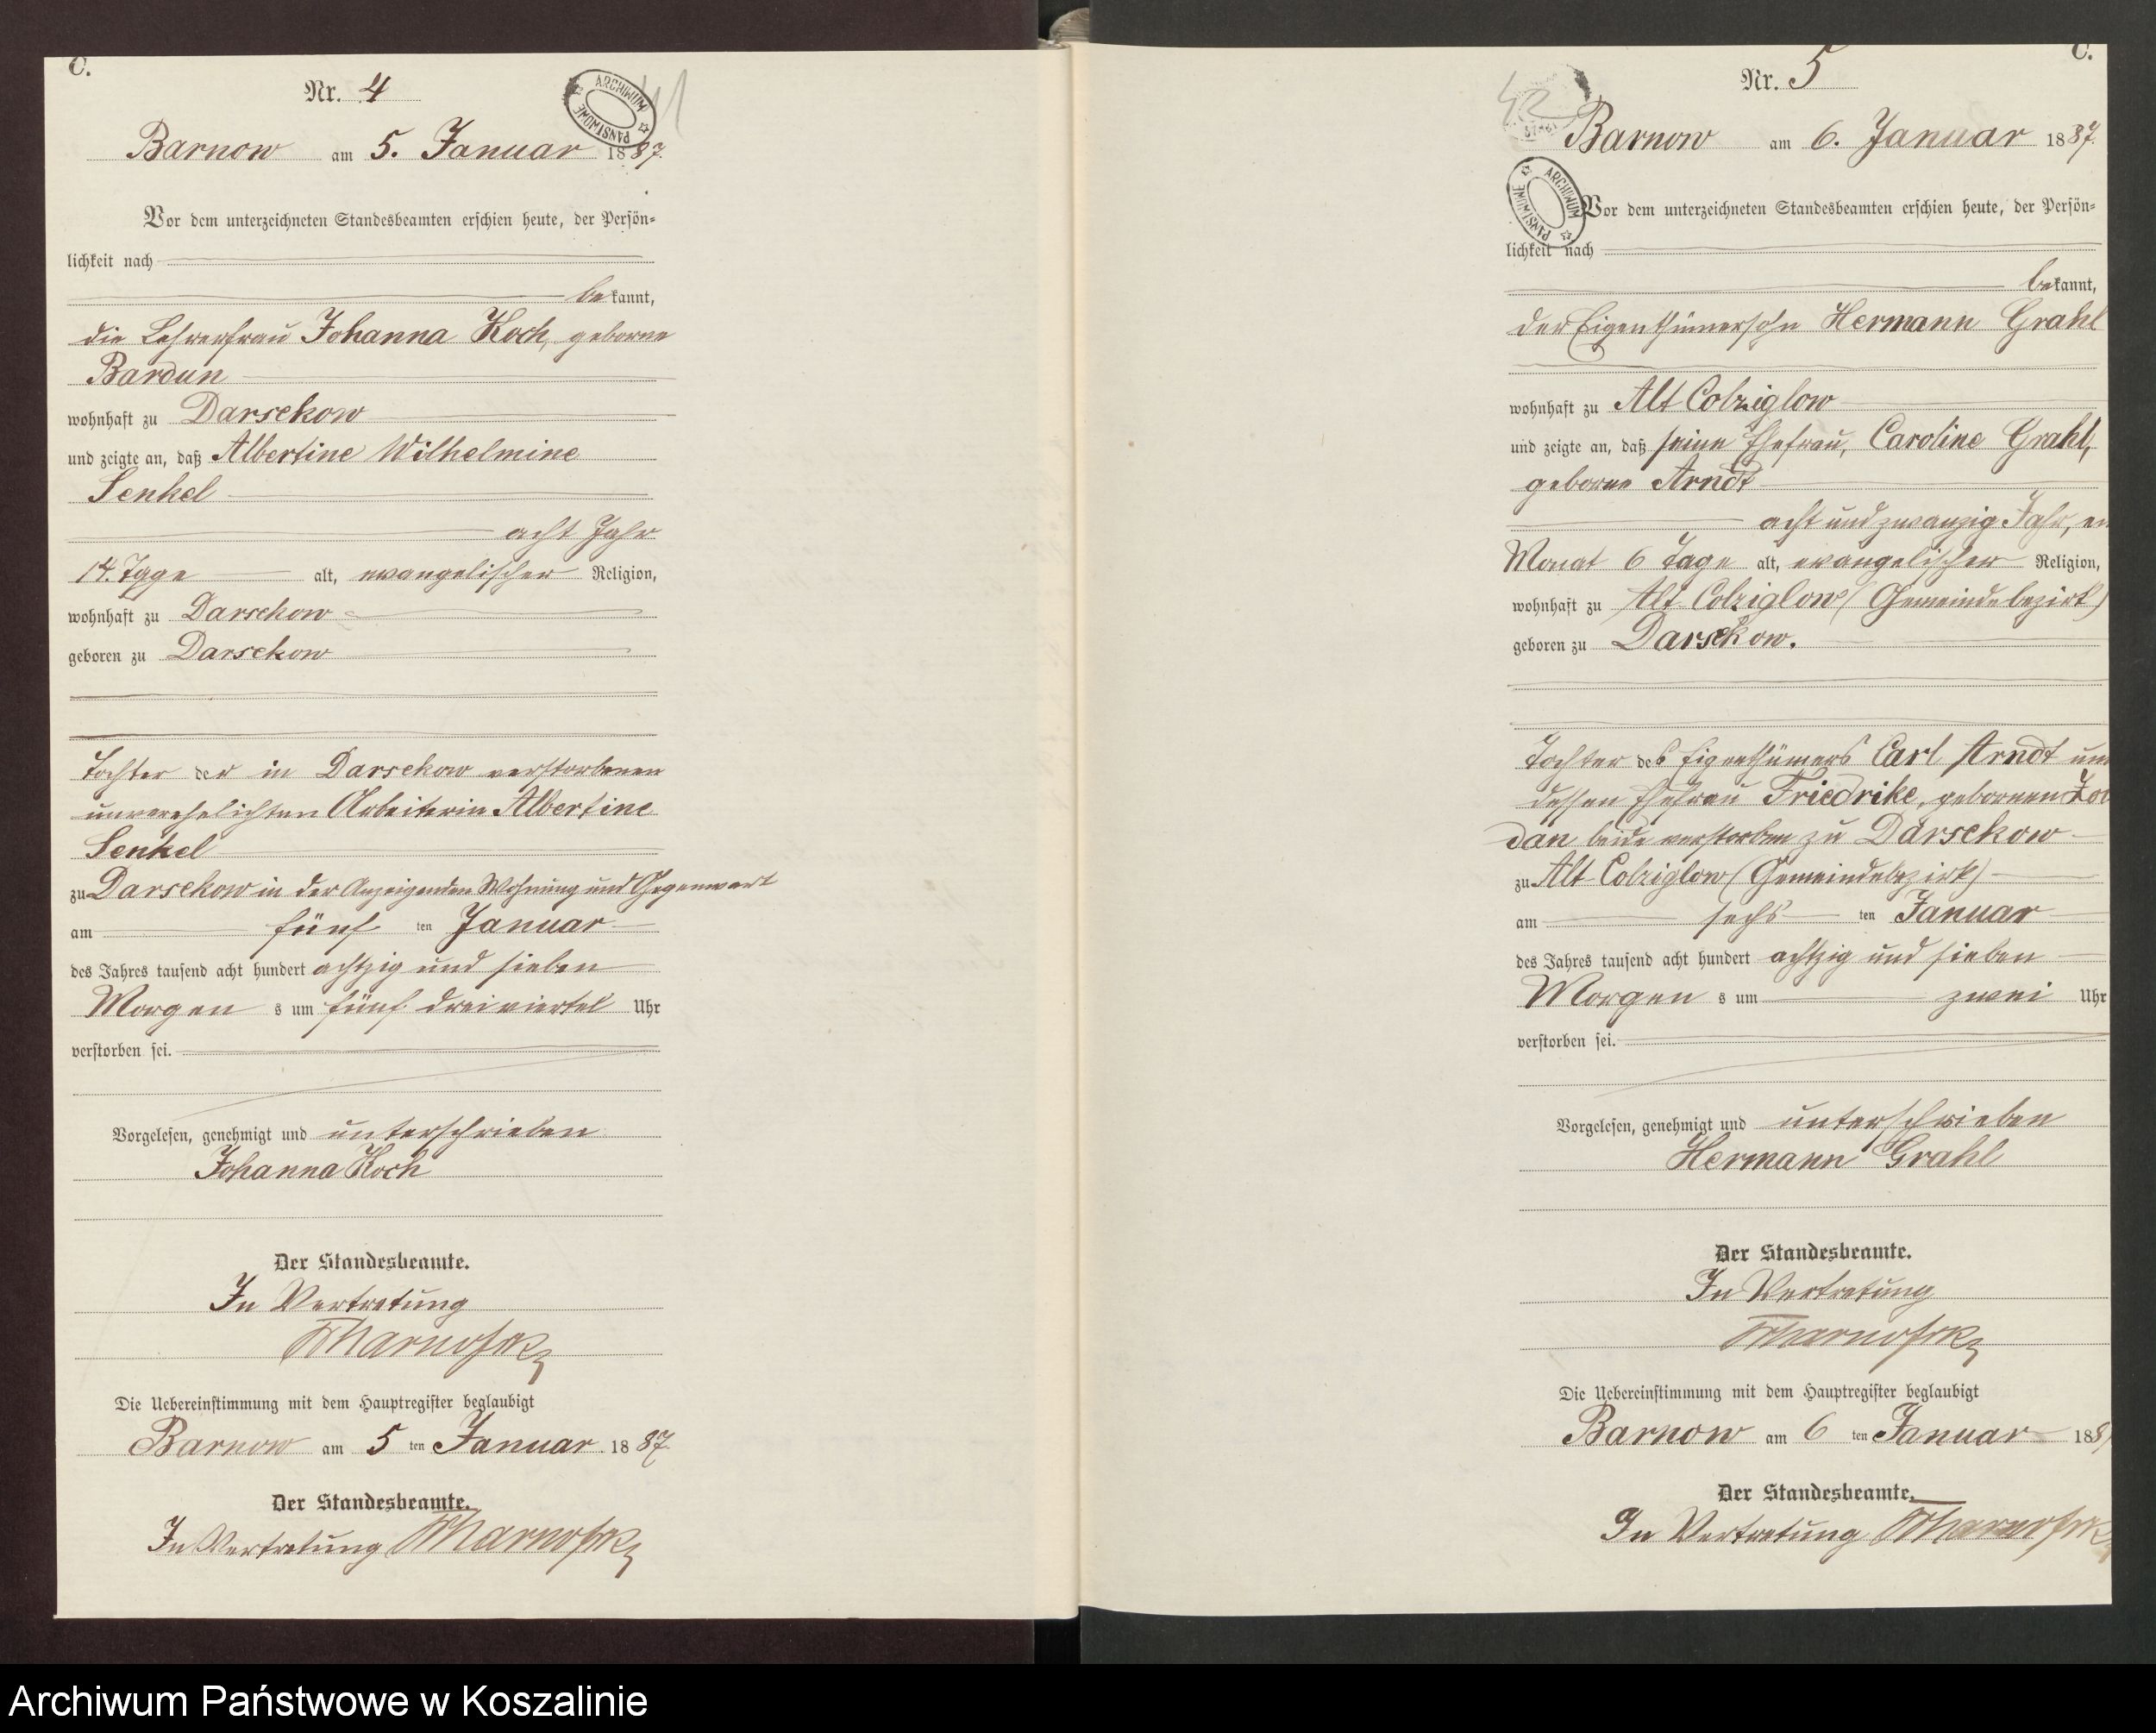 C.
Nr. 4
41
ARCHIWUM PAŃSTWOWE
Barnow am 5. Januar 1887.
Vor dem unterzeichneten Standesbeamten erschien heute, der Persön=
lichkeit nach
bekannt,
die Lehrerfrau Johanna Koch, geborne
Bardun
wohnhaft zu Darsekow
und zeigte an, daß Albertine Wilhelmine
Senkel
acht Jahr
14. Tage alt, evangelischer Religion,
wohnhaft zu Darsekow
geboren zu Darsekow
Tochter der in Darsekow verstorbenen
unverehelichten Arbeiterin Albertine
Senkel
zu Darsekow in der Anzeigenden Wohnung und Gegenwart
am fünf ten Januar
des Jahres tausend acht hundert achtzig und sieben
Morgen s um fünf dreiviertel Uhr
verstorben sei.
Vorgelesen, genehmigt und unterschrieben
Johanna Koch
Der Standesbeamte.
In Vertretung
Die Uebereinstimmung mit dem Hauptregister beglaubigt
Barnow am 5 ten Januar 1887.
Der Standesbeamte.
In Vertretung
C.
Nr. 5
42
Barnow am 6. Januar 1887.
ARCHIWUM PAŃSTWOWE
Vor dem unterzeichneten Standesbeamten erschien heute, der Persön=
lichkeit nach
bekannt,
der Eigenthümersohn Hermann Grahl
wohnhaft zu Alt Colziglow
und zeigte an, daß seine Ehefrau, Caroline Grahl,
geborne Arndt
acht und zwanzig Jahr, ein
Monat 6 Tage alt, evangelischer Religion,
wohnhaft zu Alt Colziglow (Gemeindebezirk)
geboren zu Darsekow.
Tochter des Eigenthümers Carl Arndt und
dessen Ehefrau Friedrike, gebornen Jor
dan beide verstorben zu Darsekow
zu Alt Colziglow (Gemeindebezirk)
am sechs ten Januar
des Jahres tausend acht hundert achtzig und sieben
Morgen s um zwei Uhr
verstorben sei.
Vorgelesen, genehmigt und unterschrieben
Hermann Grahl
Der Standesbeamte.
In Vertretung
Die Uebereinstimmung mit dem Hauptregister beglaubigt
Barnow am 6 ten Januar 188
Der Standesbeamte.
In Vertretung
Archiwum Państwowe w Koszalinie